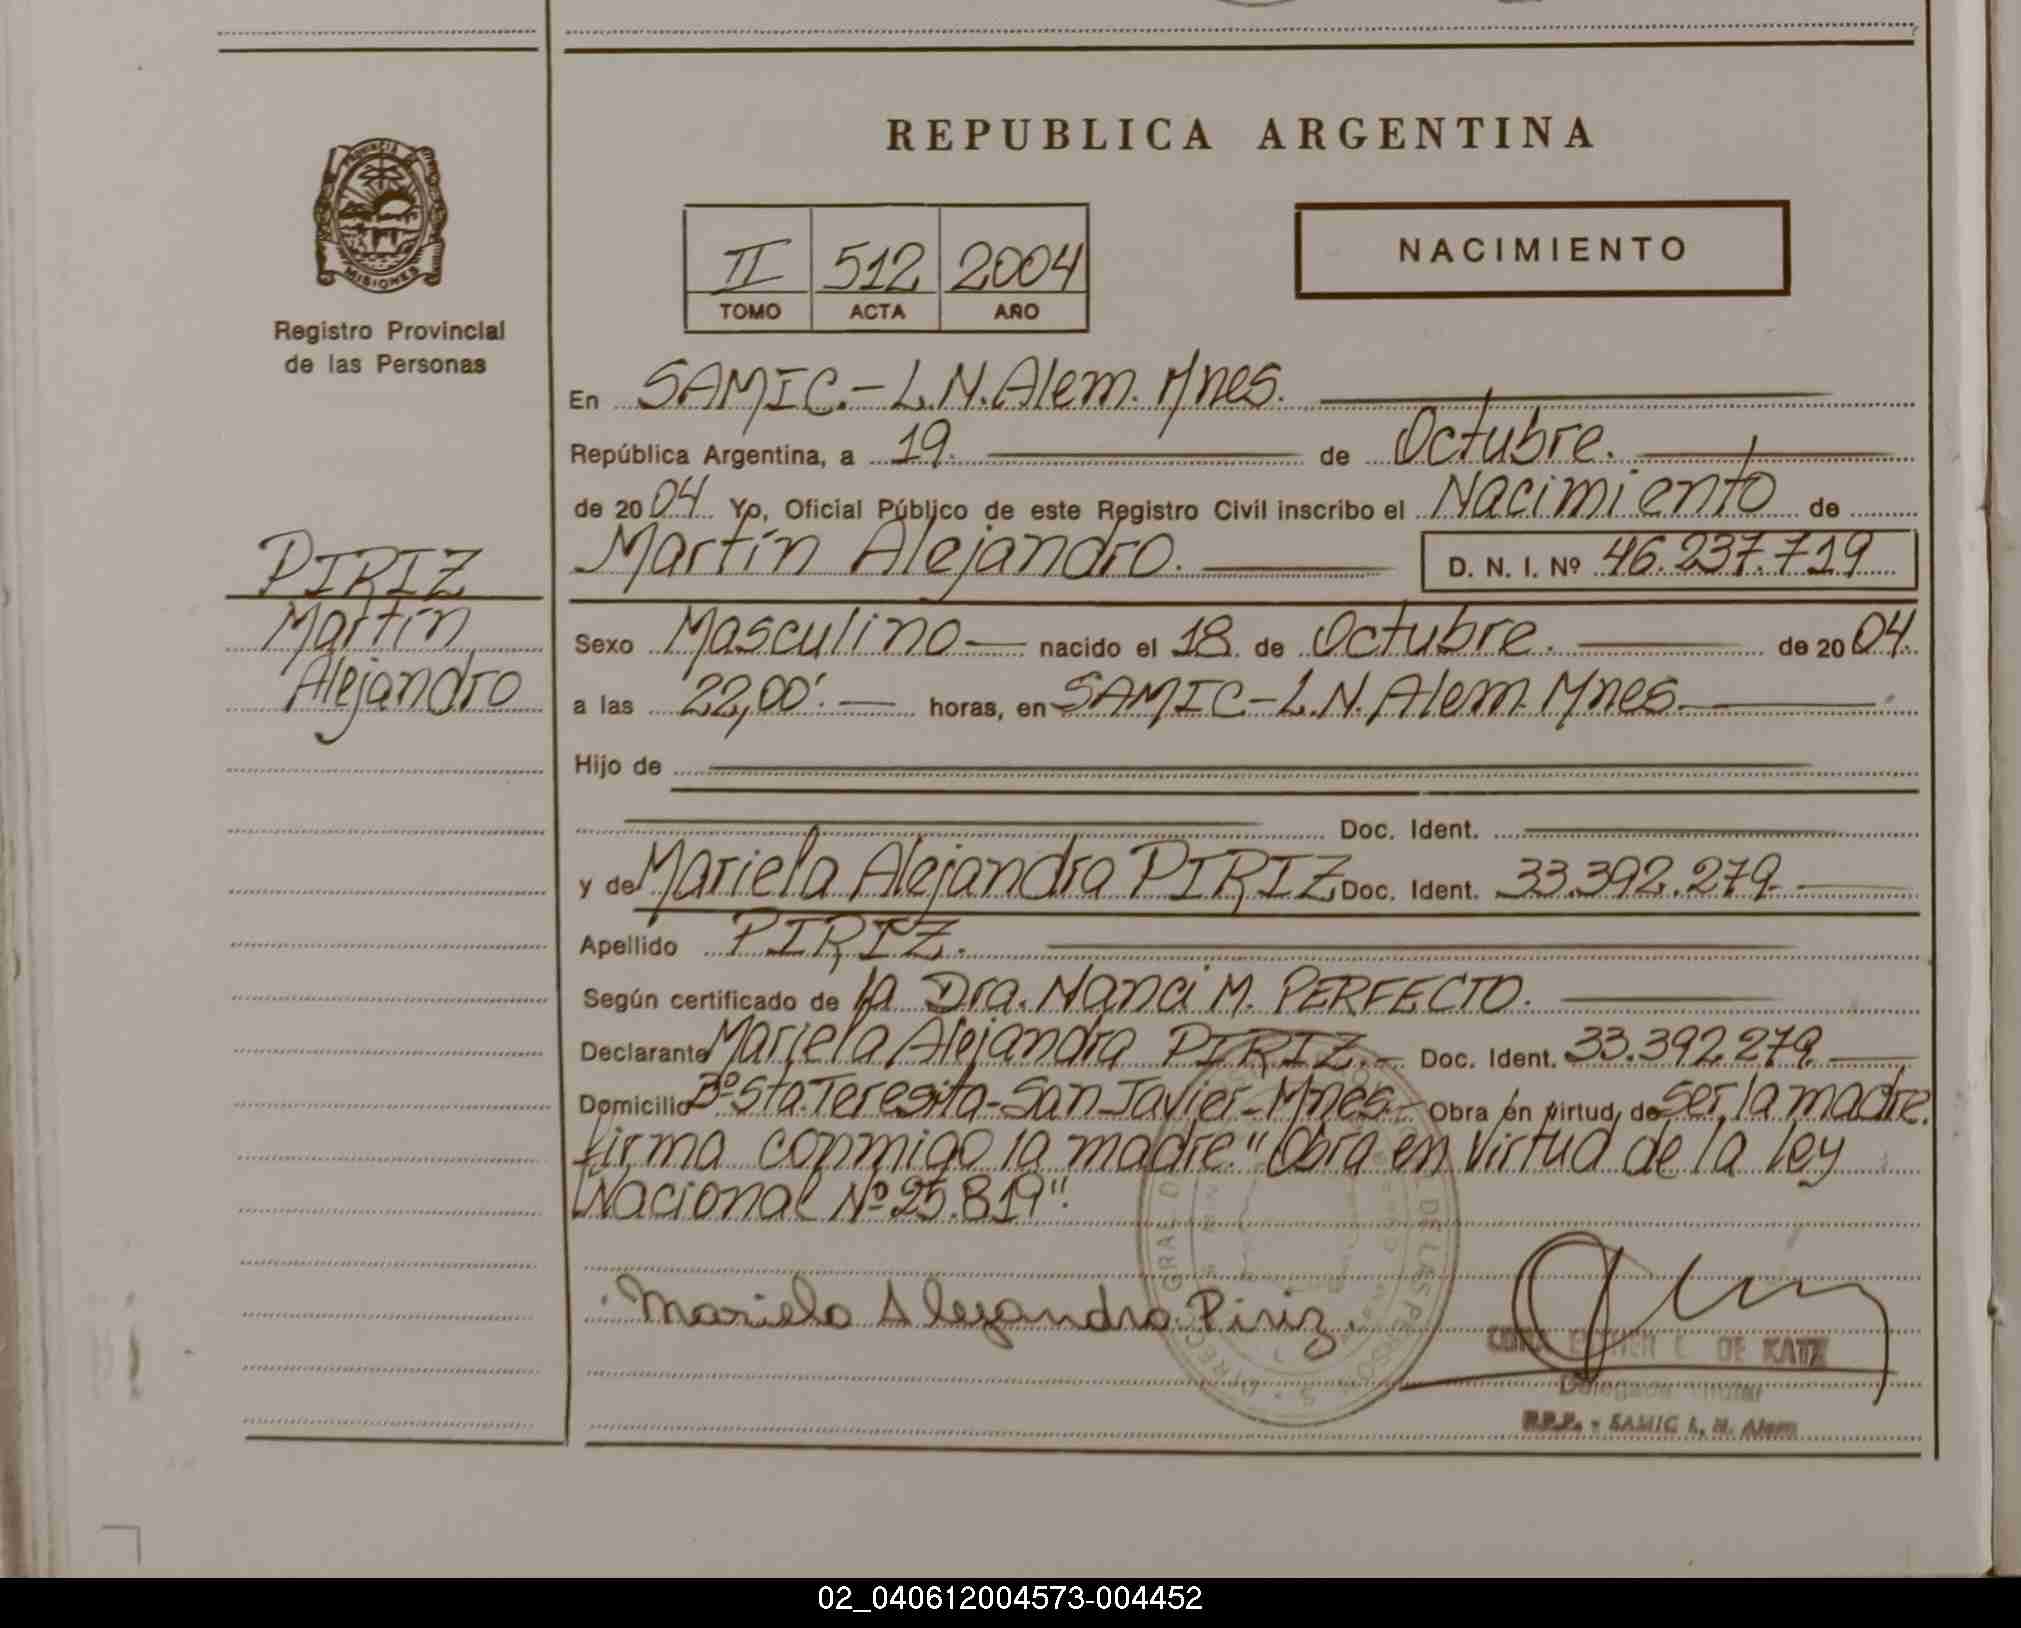 REPUBLICA ARGENTINA
PROVINCIA DE
MISIONES
Registro Provincial
de las Personas
NACIMIENTO
II 512 2004
TOMO ACTA AÑO
En SAMIC.- L.N. Alem. Mnes.
República Argentina, a 19. de Octubre.
de 2004 Yo, Oficial Público de este Registro Civil inscribo el Nacimiento de
Martín Alejandro. D. N. I. Nº 46.237.719
PIRIZ
Martín
Alejandro
Sexo Masculino nacido el 18 de Octubre. de 2004.
a las 22,00'. horas, en SAMIC-L.N. Alem. Mnes.
Hijo de
Doc. Ident.
y de Mariela Alejandra PIRIZ Doc. Ident. 33.392.279.
Apellido PIRIZ.
Según certificado de la Dra. Nanci M. PERFECTO.
Declarante Mariela Alejandra PIRIZ.- Doc. Ident. 33.392.279.
Domicilio Bº Sta. Teresita-San Javier-Mnes.- Obra en virtud de ser la madre.
firma conmigo la madre. "Obra en virtud de la ley
Nacional Nº 25.819".
Mariela Alejandra Piriz.
DE KATZ
Delegada Titular
R.P.P. - SAMIC L. N. Alem
02_040612004573-004452